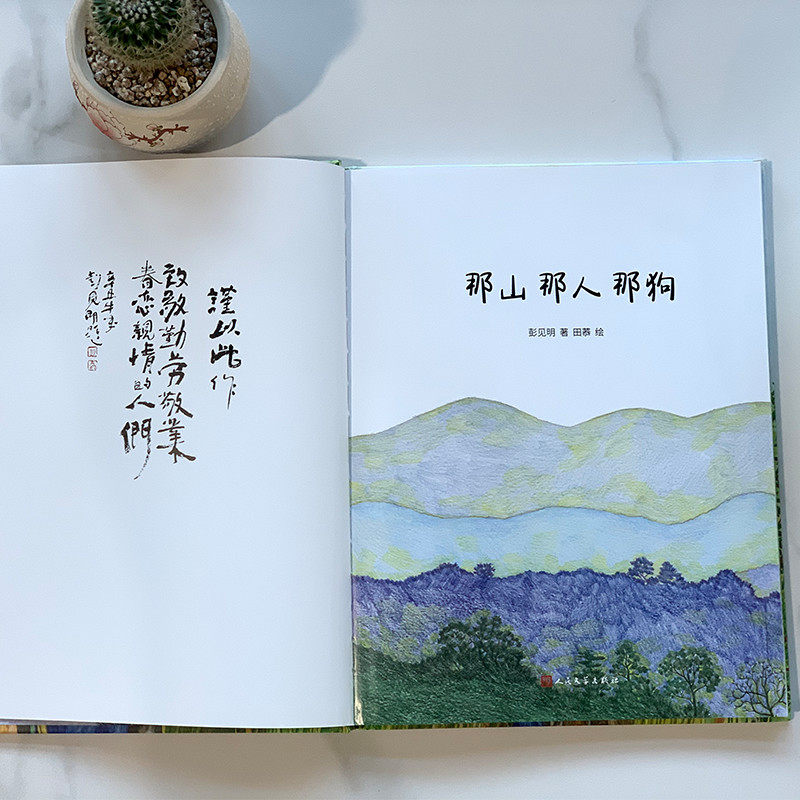 謹以此作
致敬勤劳敬業
眷恋親情的人們
辛丑年
彭见明题
那山那人那狗
彭见明 著 田慕 绘
人民文学出版社